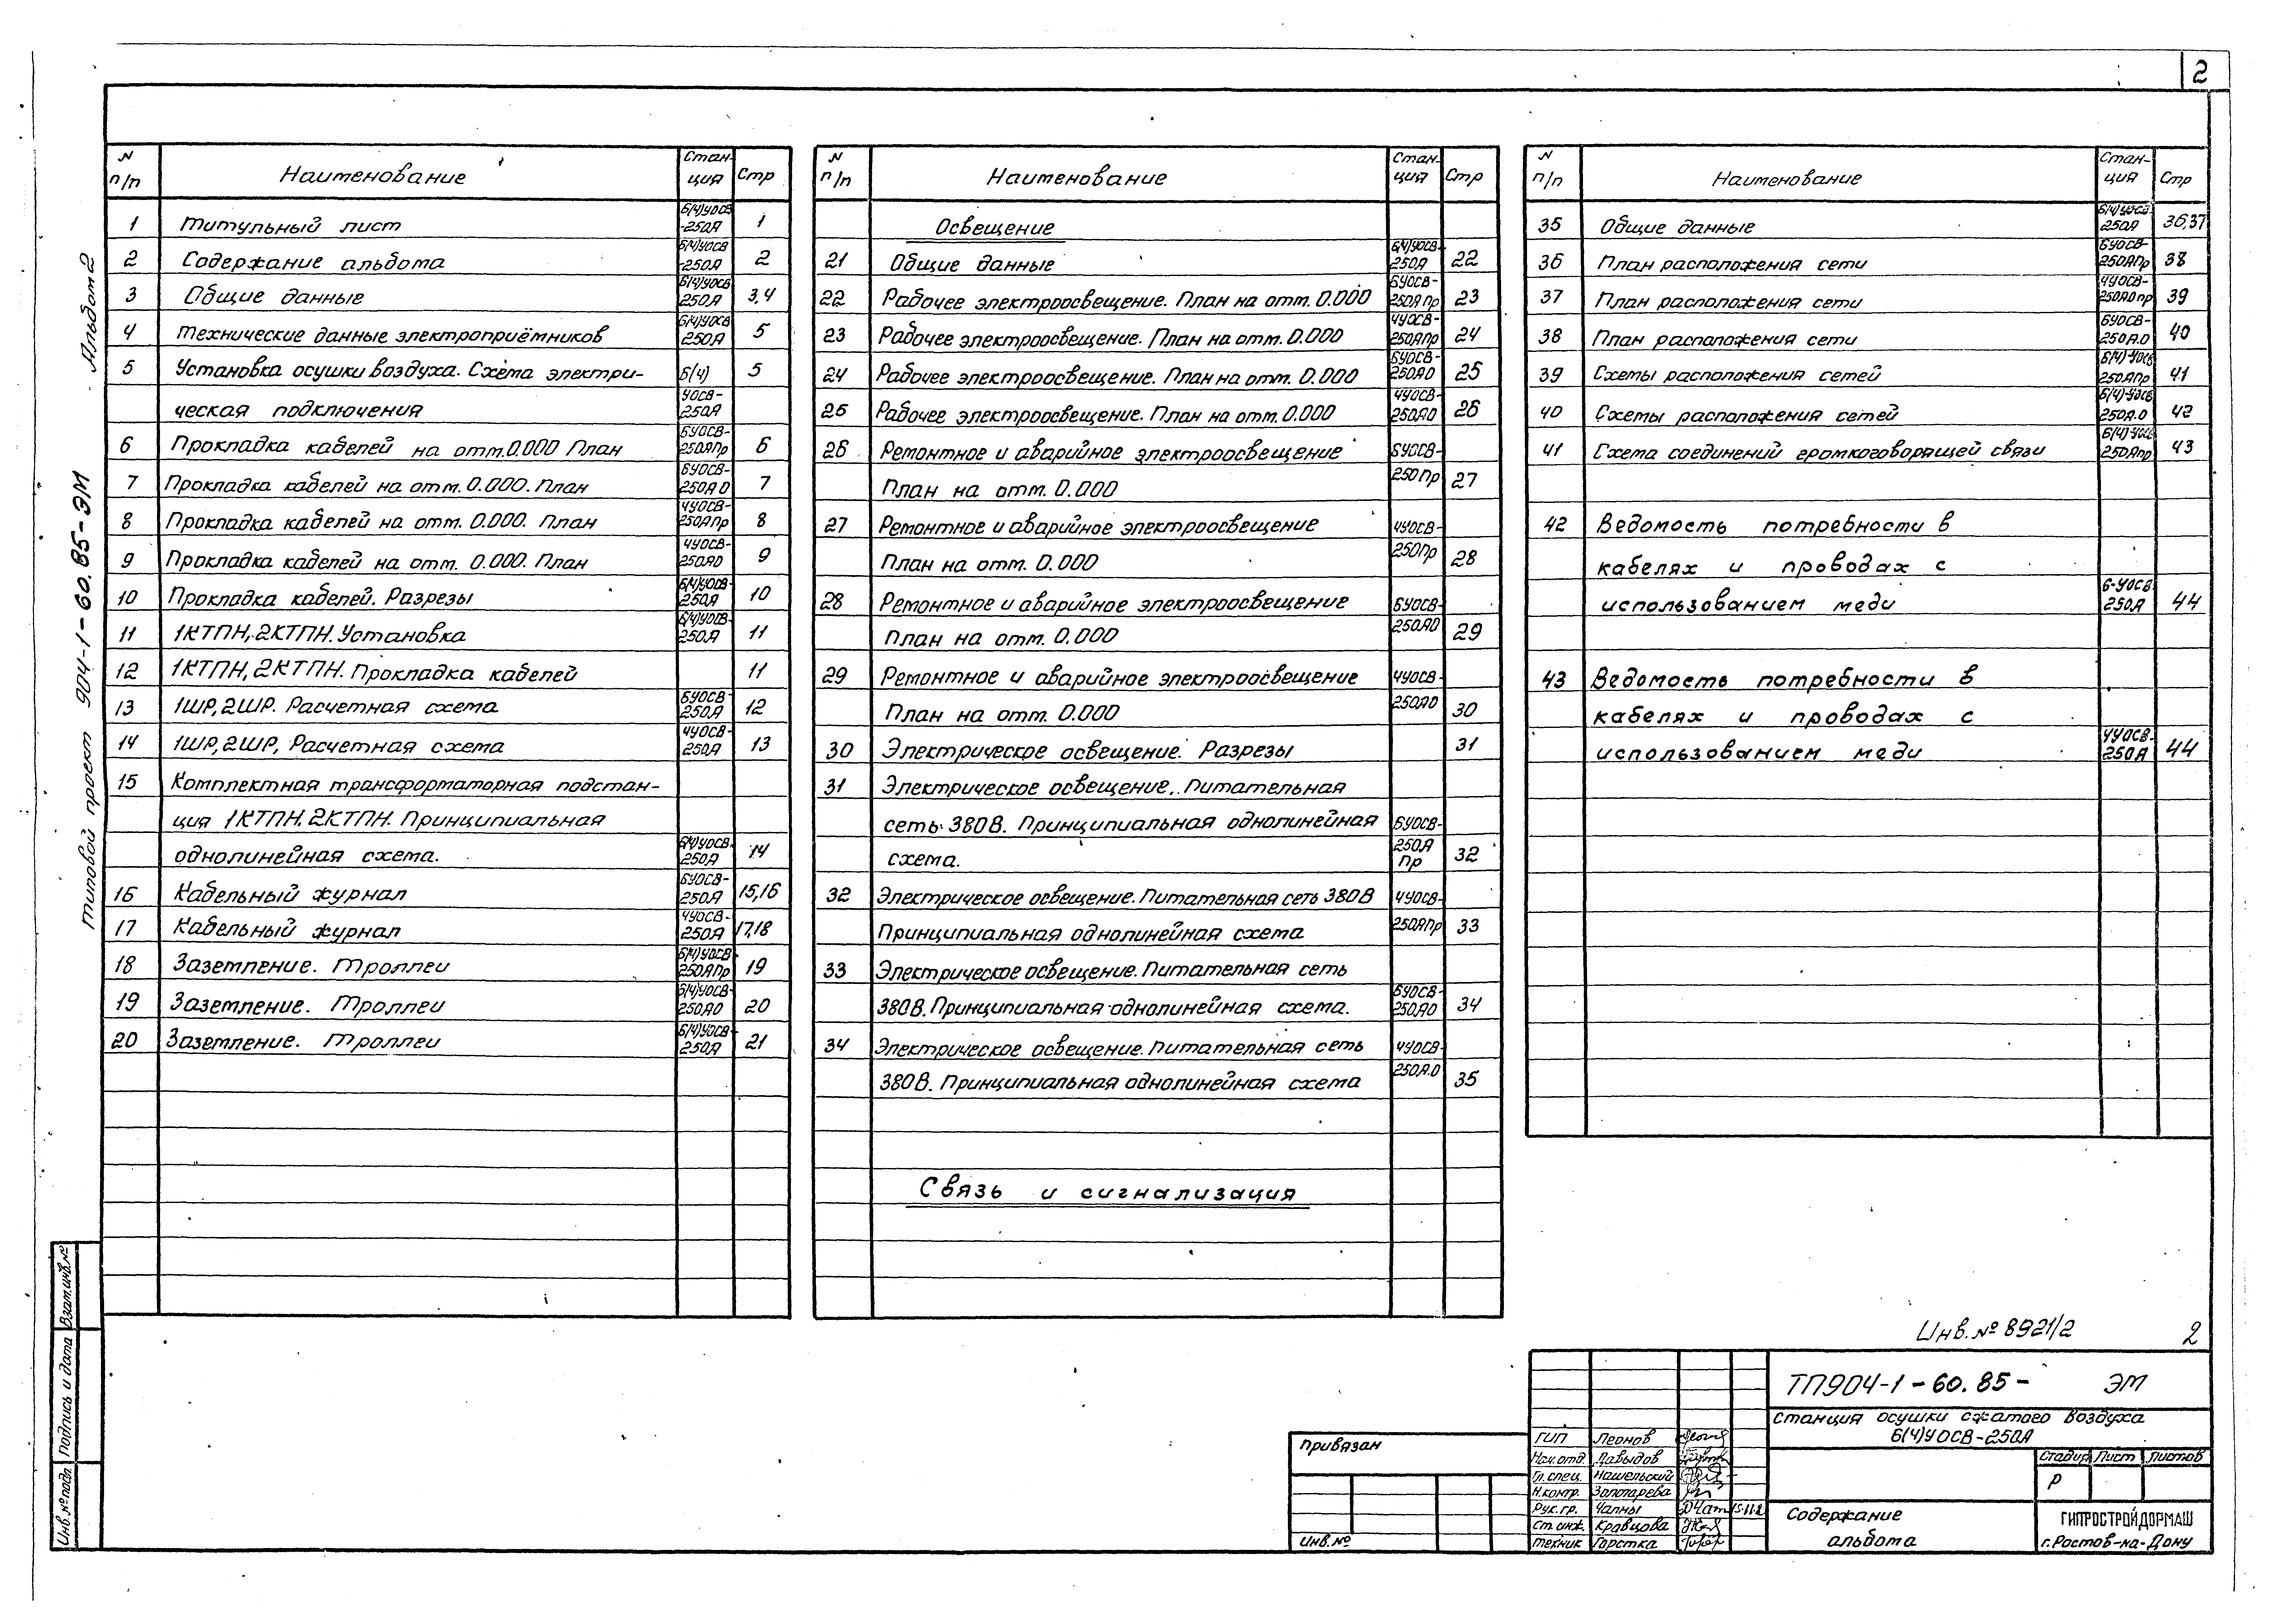 2
Типовой проект 904-1-60.85-ЭМ Альбом 2
N п/п Наименование Станция Стр
1 Титульный лист 6(4)УОСВ-250А 1
2 Содержание альбома 6(4)УОСВ-250А 2
3 Общие данные 6(4)УОСВ-250А 3,4
4 Технические данные электроприёмников 6(4)УОСВ-250А 5
5 Установка осушки воздуха. Схема электри- 6(4) 5
ческая подключения УОСВ-250А
6 Прокладка кабелей на отм.0.000 План 6УОСВ-250АПр 6
7 Прокладка кабелей на отм. 0.000. План 6УОСВ-250АО 7
8 Прокладка кабелей на отм. 0.000. План 4УОСВ-250АПр 8
9 Прокладка кабелей на отм. 0.000. План 4УОСВ-250АО 9
10 Прокладка кабелей. Разрезы 6(4)УОСВ-250А 10
11 1КТПН, 2КТПН. Установка 6(4)УОСВ-250А 11
12 1КТПН, 2КТПН. Прокладка кабелей 11
13 1ШР, 2ШР. Расчетная схема 6УОСВ-250А 12
14 1ШР, 2ШР, Расчетная схема 4УОСВ-250А 13
15 Комплектная трансформаторная подстан-
ция 1КТПН. 2КТПН. Принципиальная
однолинейная схема. 6(4)УОСВ-250А 14
16 Кабельный журнал 6УОСВ-250А 15,16
17 Кабельный журнал 4УОСВ-250А 17,18
18 Заземление. Троллеи 6(4)УОСВ-250АПр 19
19 Заземление. Троллеи 6(4)УОСВ-250АО 20
20 Заземление. Троллеи 6(4)УОСВ-250А 21
N п/п Наименование Станция Стр
Освещение
21 Общие данные 6(4)УОСВ-250А 22
22 Рабочее электроосвещение. План на отм. 0.000 6УОСВ-250АПр 23
23 Рабочее электроосвещение. План на отм. 0.000 4УОСВ-250АПр 24
24 Рабочее электроосвещение. План на отм. 0.000 6УОСВ-250АО 25
25 Рабочее электроосвещение. План на отм. 0.000 4УОСВ-250АО 26
26 Ремонтное и аварийное электроосвещение 6УОСВ-
План на отм. 0.000 250Пр 27
27 Ремонтное и аварийное электроосвещение 4УОСВ-
План на отм. 0.000 250Пр 28
28 Ремонтное и аварийное электроосвещение 6УОСВ-
План на отм. 0.000 250АО 29
29 Ремонтное и аварийное электроосвещение 4УОСВ-
План на отм. 0.000 250АО 30
30 Электрическое освещение. Разрезы 31
31 Электрическое освещение. Питательная
сеть 380В. Принципиальная однолинейная 6УОСВ-
схема. 250А Пр 32
32 Электрическое освещение. Питательная сеть 380В 4УОСВ-
Принципиальная однолинейная схема 250АПр 33
33 Электрическое освещение. Питательная сеть
380В. Принципиальная однолинейная схема. 6УОСВ-250АО 34
34 Электрическое освещение. Питательная сеть 4УОСВ-
380В. Принципиальная однолинейная схема 250А.О 35
Связь и сигнализация
N п/п Наименование Станция Стр
35 Общие данные 6(4)УОСВ-250А 36,37
36 План расположения сети 6УОСВ-250АПр 38
37 План расположения сети 4УОСВ-250АОпр 39
38 План расположения сети 6УОСВ-250А.О 40
39 Схемы расположения сетей 6(4)-УОСВ 250АПр 41
40 Схемы расположения сетей 6(4)-УОСВ 250А.О 42
41 Схема соединений громкоговорящей связи 6(4)-УОСВ 250Апр 43
42 Ведомость потребности в
кабелях и проводах с
использованием меди 6-УОСВ 250А 44
43 Ведомость потребности в
кабелях и проводах с
использованием меди 4УОСВ-250А 44
Инв.№ 8921/2 2
ТП904-1-60.85- ЭМ
Станция осушки сжатого воздуха
6(4)УОСВ-250А
Стадия Лист Листов
Р
Содержание
альбома
ГИПРОСТРОЙДОРМАШ
г.Ростов-на-Дону
ГИП Леонов
Нач.отд. Давыдов
Гл.спец. Нашельский
Н.контр. Золотарева
Рук.гр. Чапны
Ст.инж. Кравцова
Техник Горстка
Привязан
Инв.№
Взам.инв.№
Подпись и дата
Инв.№подл.